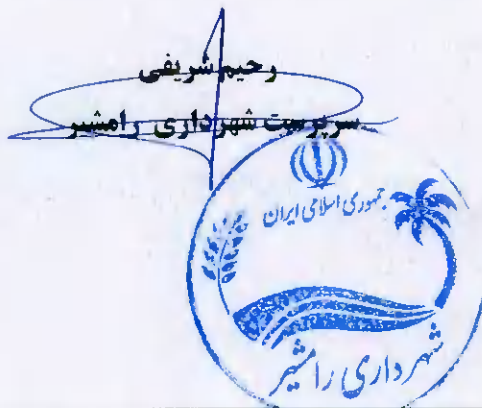 رحیم شریفی
سرپرست شهرداری رامشیر
جمهوری اسلامی ایران
شهرداری رامشیر